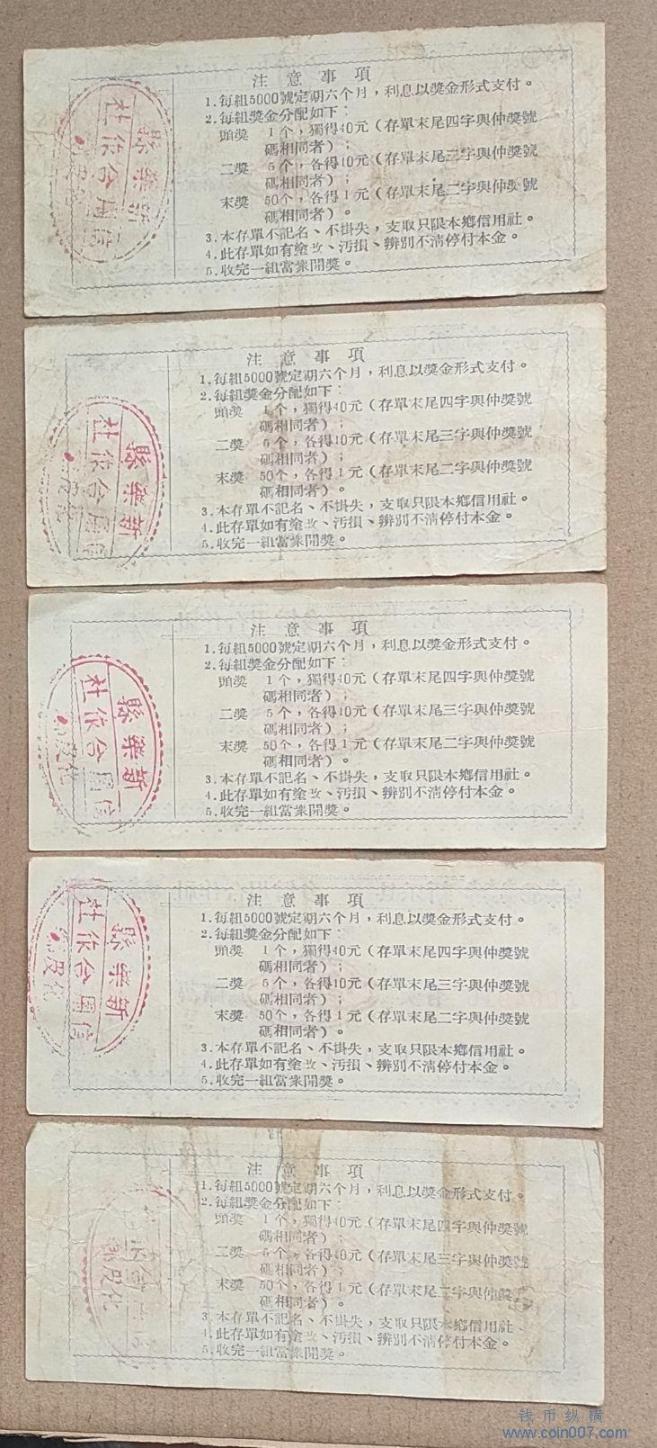 注意事項
1.每組5000號定期六个月，利息以獎金形式支付。
2.每組獎金分配如下：
頭獎 1个，獨得40元（存單末尾四字與仲獎號
碼相同者）；
二獎 5个，各得10元（存單末尾三字與仲獎號
碼相同者）；
末獎 50个，各得1元（存單末尾二字與仲獎號
碼相同者）。
3.本存單不記名、不掛失，支取只限本鄉信用社。
4.此存單如有塗改、汚損、辨別不淸停付本金。
5.收完一組當衆開獎。
新樂縣
信用合作社
注意事項
1.每組5000號定期六个月，利息以獎金形式支付。
2.每組獎金分配如下：
頭獎 1个，獨得40元（存單末尾四字與仲獎號
碼相同者）；
二獎 5个，各得10元（存單末尾三字與仲獎號
碼相同者）；
末獎 50个，各得1元（存單末尾二字與仲獎號
碼相同者）。
3.本存單不記名、不掛失，支取只限本鄉信用社。
4.此存單如有塗改、汚損、辨別不淸停付本金。
5.收完一組當衆開獎。
新樂縣
信用合作社
注意事項
1.每組5000號定期六个月，利息以獎金形式支付。
2.每組獎金分配如下：
頭獎 1个，獨得40元（存單末尾四字與仲獎號
碼相同者）；
二獎 5个，各得10元（存單末尾三字與仲獎號
碼相同者）；
末獎 50个，各得1元（存單末尾二字與仲獎號
碼相同者）。
3.本存單不記名、不掛失，支取只限本鄉信用社。
4.此存單如有塗改、汚損、辨別不淸停付本金。
5.收完一組當衆開獎。
新樂縣
信用合作社
注意事項
1.每組5000號定期六个月，利息以獎金形式支付。
2.每組獎金分配如下：
頭獎 1个，獨得40元（存單末尾四字與仲獎號
碼相同者）；
二獎 5个，各得10元（存單末尾三字與仲獎號
碼相同者）；
末獎 50个，各得1元（存單末尾二字與仲獎號
碼相同者）。
3.本存單不記名、不掛失，支取只限本鄉信用社。
4.此存單如有塗改、汚損、辨別不淸停付本金。
5.收完一組當衆開獎。
新樂縣
信用合作社
注意事項
1.每組5000號定期六个月，利息以獎金形式支付。
2.每組獎金分配如下：
頭獎 1个，獨得40元（存單末尾四字與仲獎號
碼相同者）；
二獎 5个，各得10元（存單末尾三字與仲獎號
碼相同者）；
末獎 50个，各得1元（存單末尾二字與仲獎
碼相同者）。
3.本存單不記名、不掛失，支取只限本鄉信用社
4.此存單如有塗改、汚損、辨別不淸停付本金。
5.收完一組當衆開獎。
钱币纵横
www.coin007.com